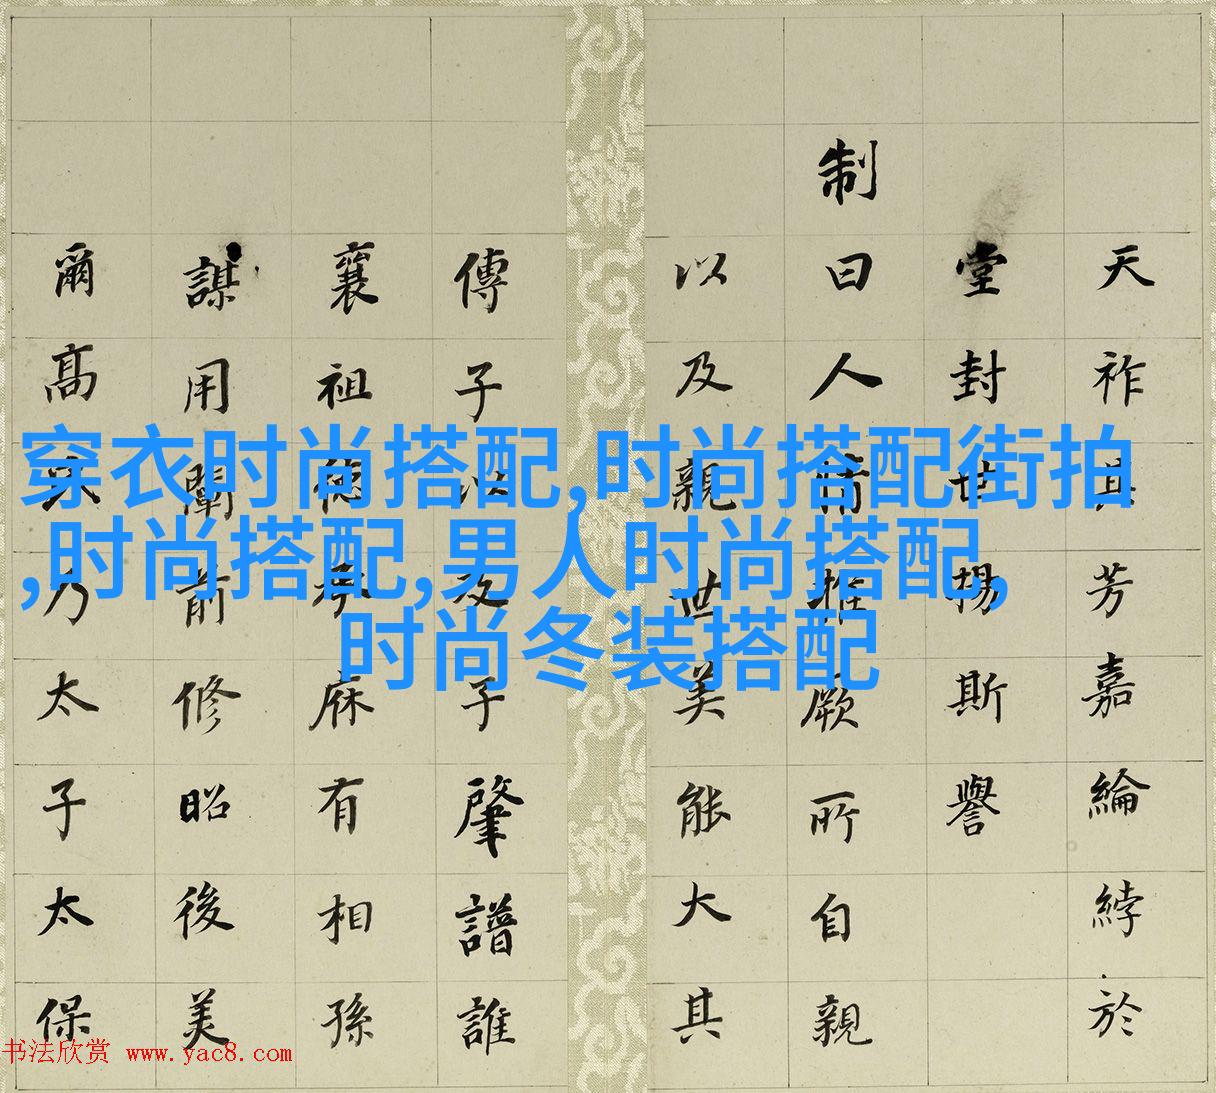 天祚其芳嘉綸綍於
堂封世揚斯譽
制曰人情推厥所自親
以及親世美能大其
傳子以及子肇譜誰
襄祖德承庥有相孫
謀用闡前修昭後美
爾高乃太子太保
穿衣时尚搭配,时尚搭配街拍
,时尚搭配,男人时尚搭配,
时尚冬装搭配
书法欣赏 www.yac8.com